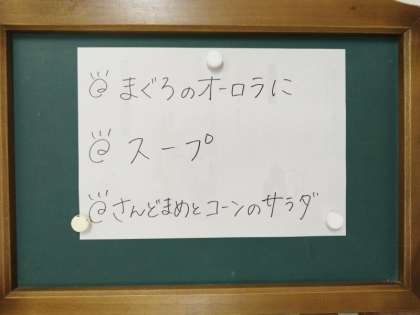 @ まぐろのオーロラに
@ スープ
@ さんどまめとコーンのサラダ